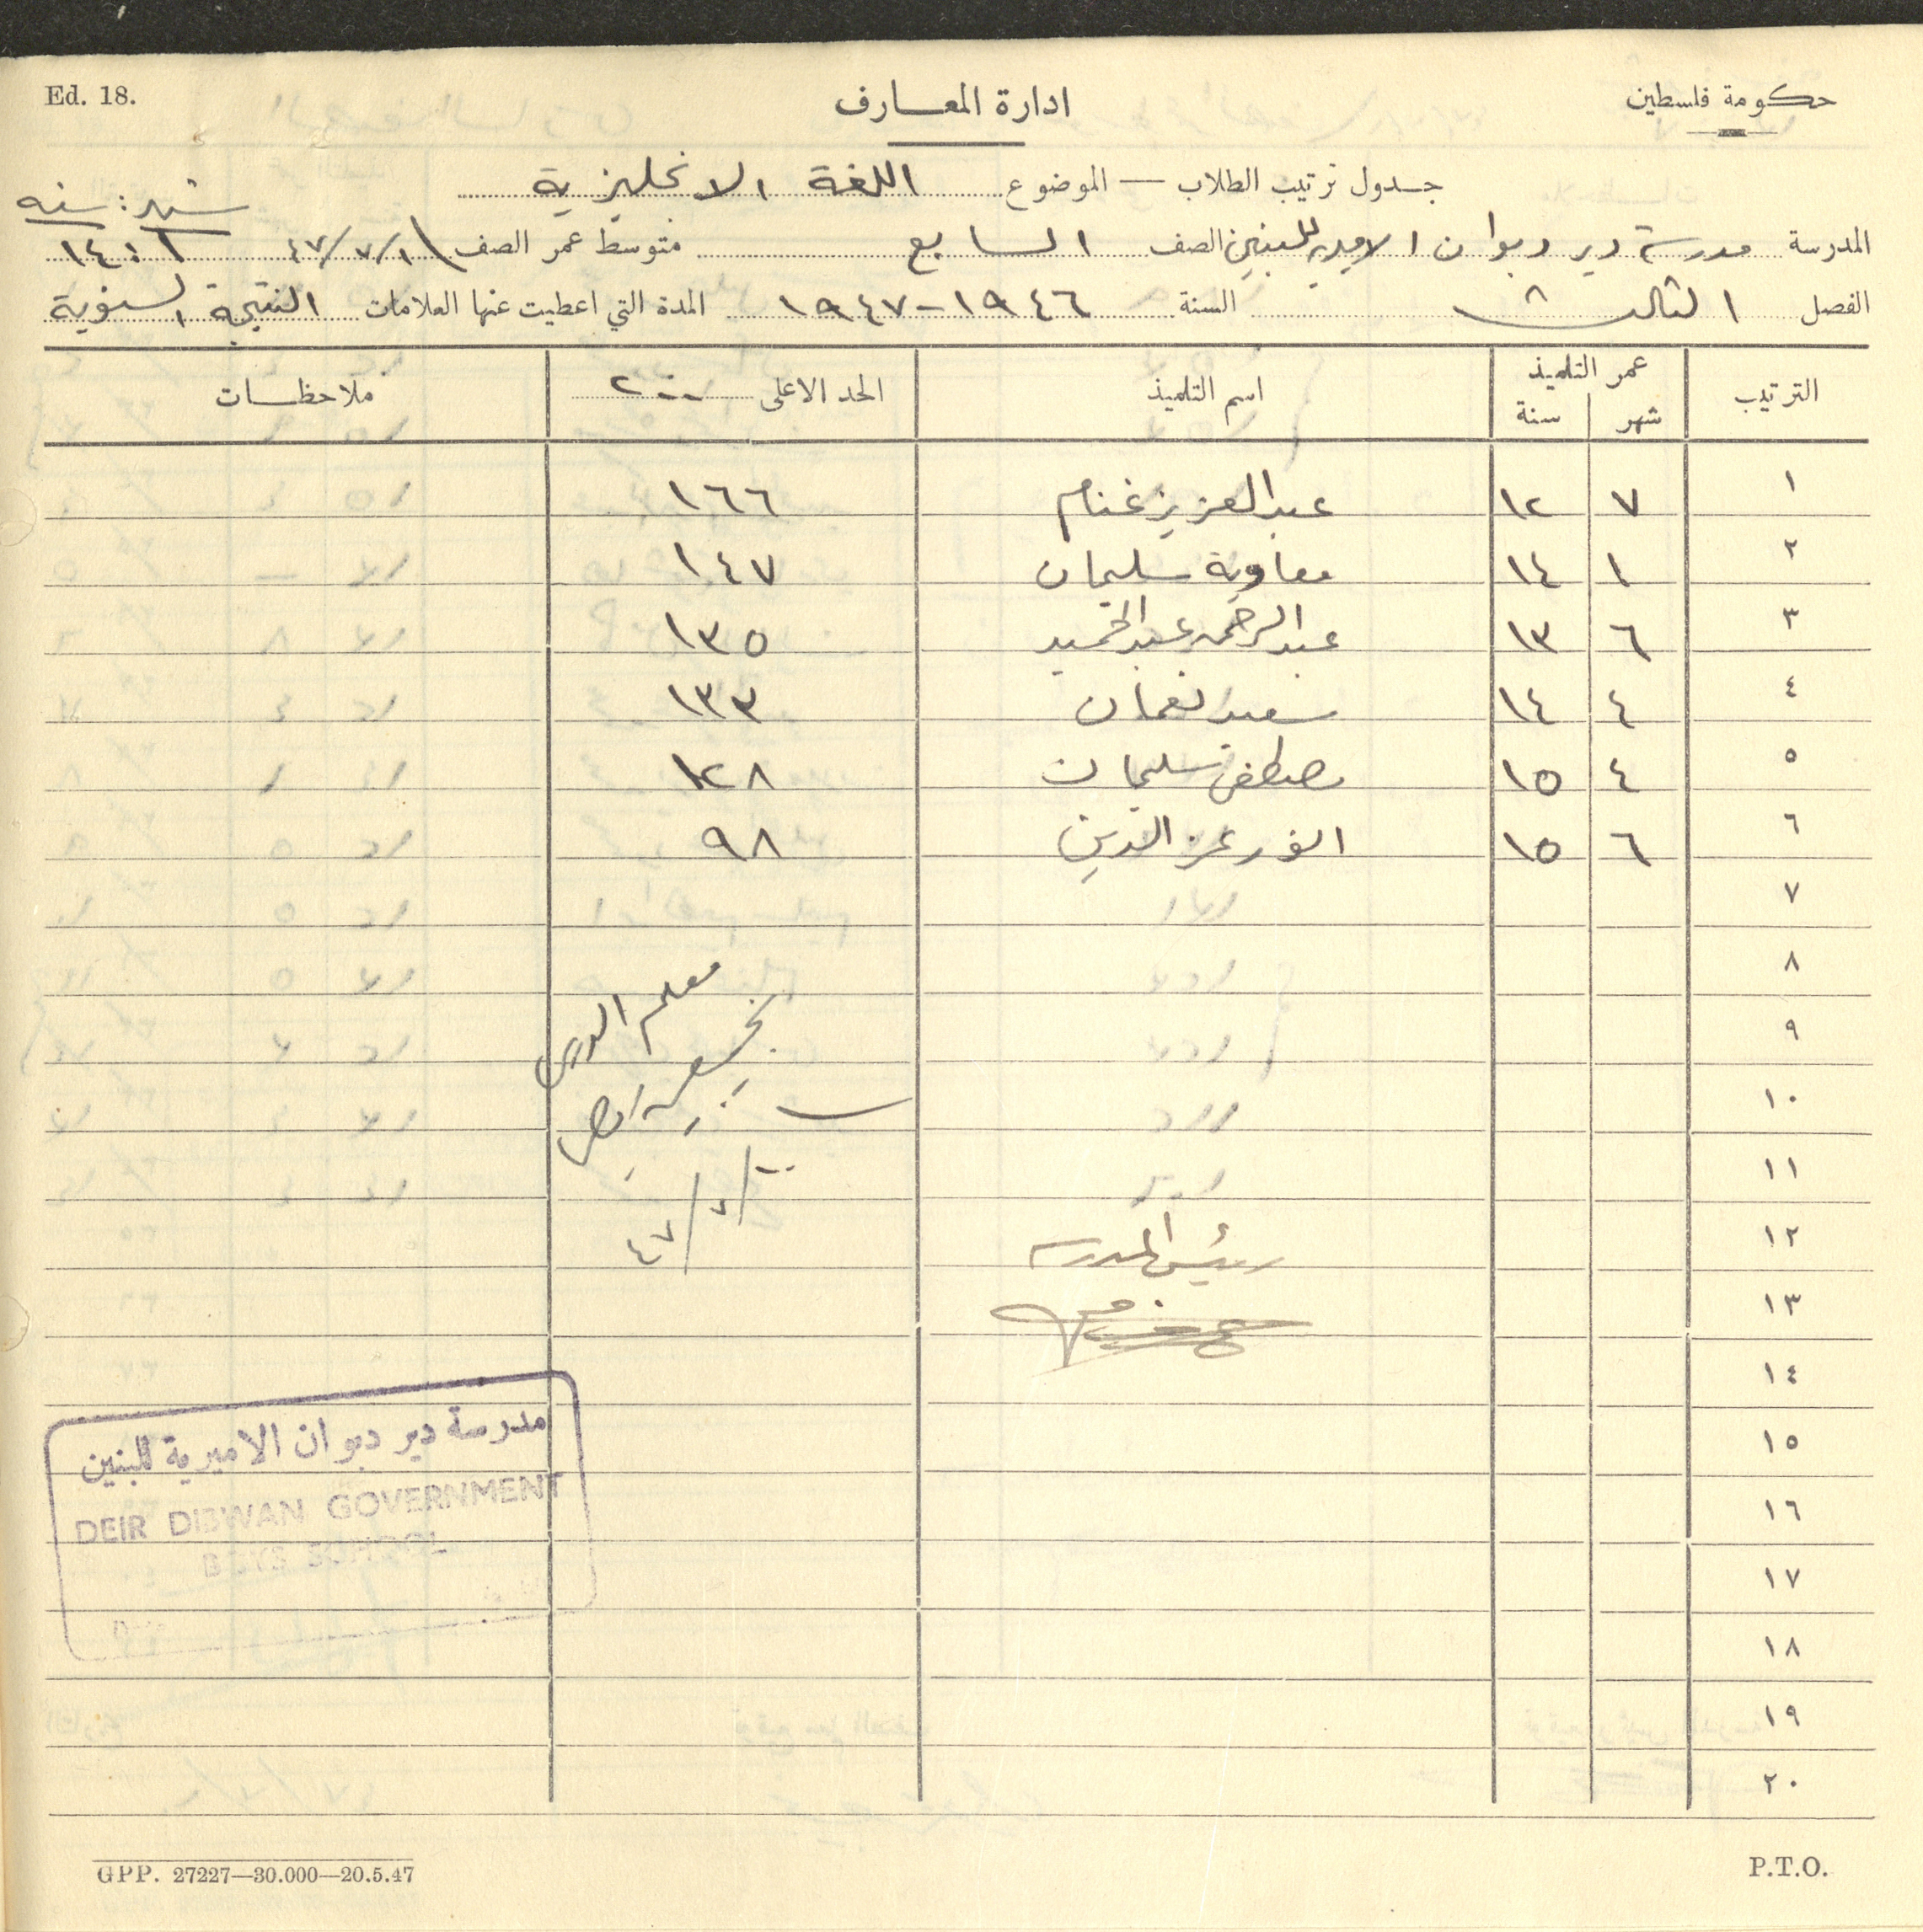 Ed. 18.
ادارة المعارف
حكومة فلسطين
جدول ترتيب الطلاب — الموضوع اللغة الانجليزية
شهر : سنه
المدرسة مدرسة دير دبوان الاميرية للبنين الصف السابع متوسط عمر الصف ١/٧/٤٧ ١ : ١٤
الفصل الثالث السنة ١٩٤٦-١٩٤٧ المدة التي اعطيت عنها العلامات النتيجة السنوية
الترتيب عمر التلميذ شهر سنة اسم التلميذ الحد الاعلى ٢٠٠ ملاحظات
١ ٧ ١٢ عبد العزيز غنام ١٦٦
٢ ١ ١٤ معاوية سليمان ١٤٧
٣ ٦ ١٣ عبد الرحمن عبد الحميد ١٣٥
٤ ٤ ١٤ سعيد نعمان ١٣٣
٥ ٤ ١٥ مصطفى سليمان ١٢٨
٦ ٦ ١٥ انور عز الدين ٩٨
٧
٨
معلم الدرس
٩
١٠
١١
١٢
رئيس المدرسة
١٣
١٤
١٥
١٦
١٧
١٨
١٩
٢٠
مدرسة دير دبوان الاميرية للبنين
DEIR DIBWAN GOVERNMENT
BOYS SCHOOL
GPP. 27227—30.000—20.5.47
P.T.O.